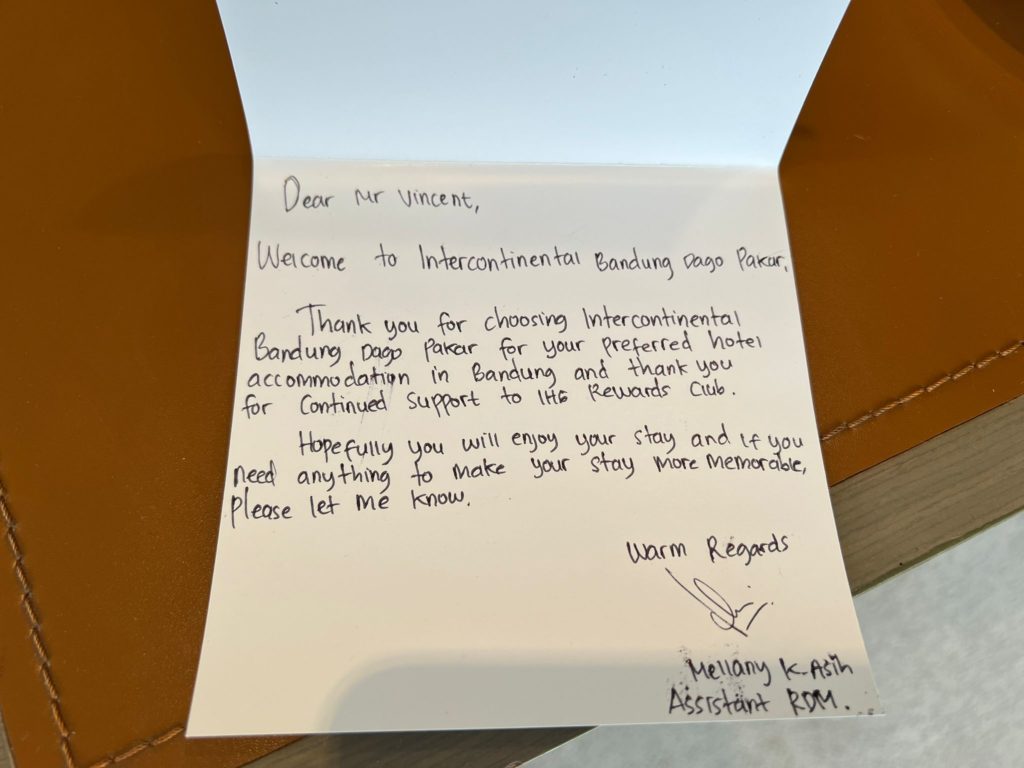 Dear Mr Vincent,
Welcome to Intercontinental Bandung Dago Pakar.
Thank you for choosing Intercontinental
Bandung Dago Pakar for your preferred hotel
accommodation in Bandung and thank you
for Continued Support to IHG Rewards Club.
Hopefully you will enjoy your stay and if you
need anything to make your stay more memorable,
please let me know.
Warm Regards
Mellany K. Asih
Assistant RDM.